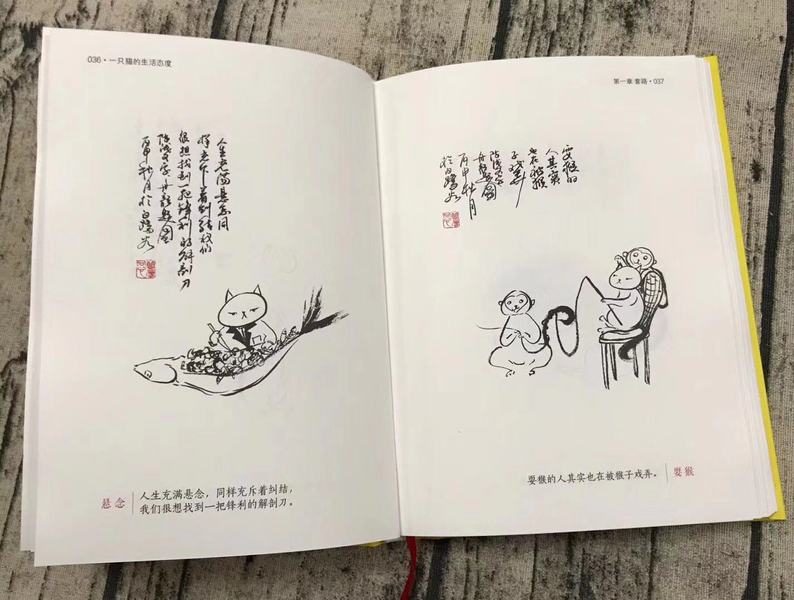 036·一只猫的生活态度
人生充满悬念同
样充斥着纠结我们
很想找到一把锋利的解剖刀
丙申秋月于白鹭谷
悬念
人生充满悬念，同样充斥着纠结，
我们很想找到一把锋利的解剖刀。
第一章 套路·037
耍猴的
人其实
也在被猴
子戏弄
丙申秋月
耍猴的人其实也在被猴子戏弄。
耍猴